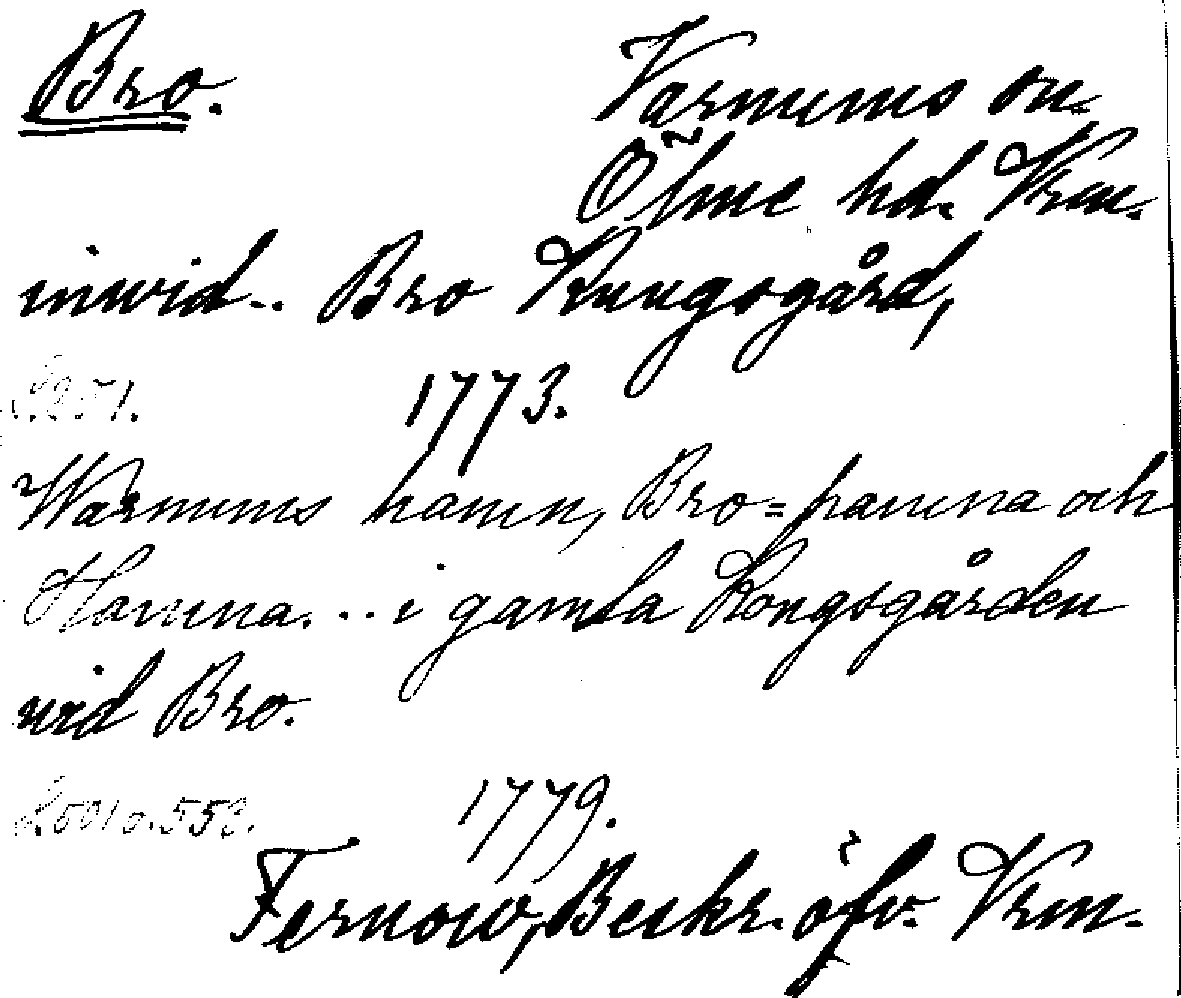 Bro. Varnums sn.
Ölme hd. Vrm.
inwid.. Bro Kungsgård,
S. 251. 1773.
Warnums hamn, Bro=hamna och
Hamna... i gamla Kongsgården
vid Bro.
S. 501 o. 553. 1779.
Fernow, Beskr. öfv. Vrm.